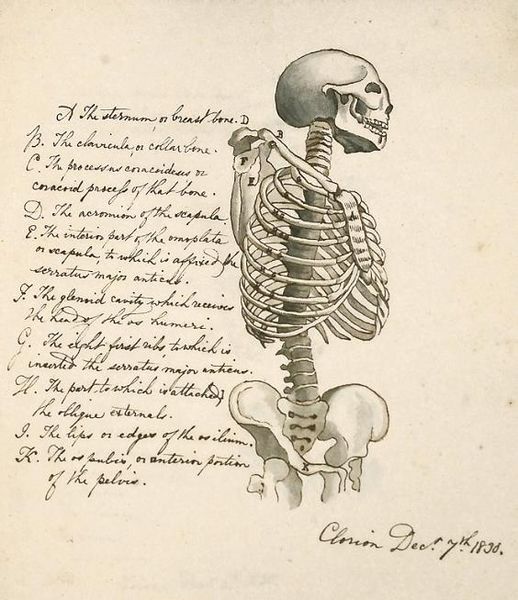 A The sternum, or breast bone.
B. The clavicula, or collar bone.
C. The processus coracoideus or
coracoid process of that bone.
D. The acromion of the scapula
E. The interior part of the omoplata
or scapula, to which is affixed the
serratus major anticus.
F. The glenoid cavity which receives
the head of the os humeri.
G. The eight first ribs, to which is
inserted the serratus major anticus.
H. The part to which is attached
the oblique externals.
I. The lips or edges of the os ilium.
K. The os pubis, or anterior portion
of the pelvis.
D
B
F
E
A
K
Dec. 7th 1830.